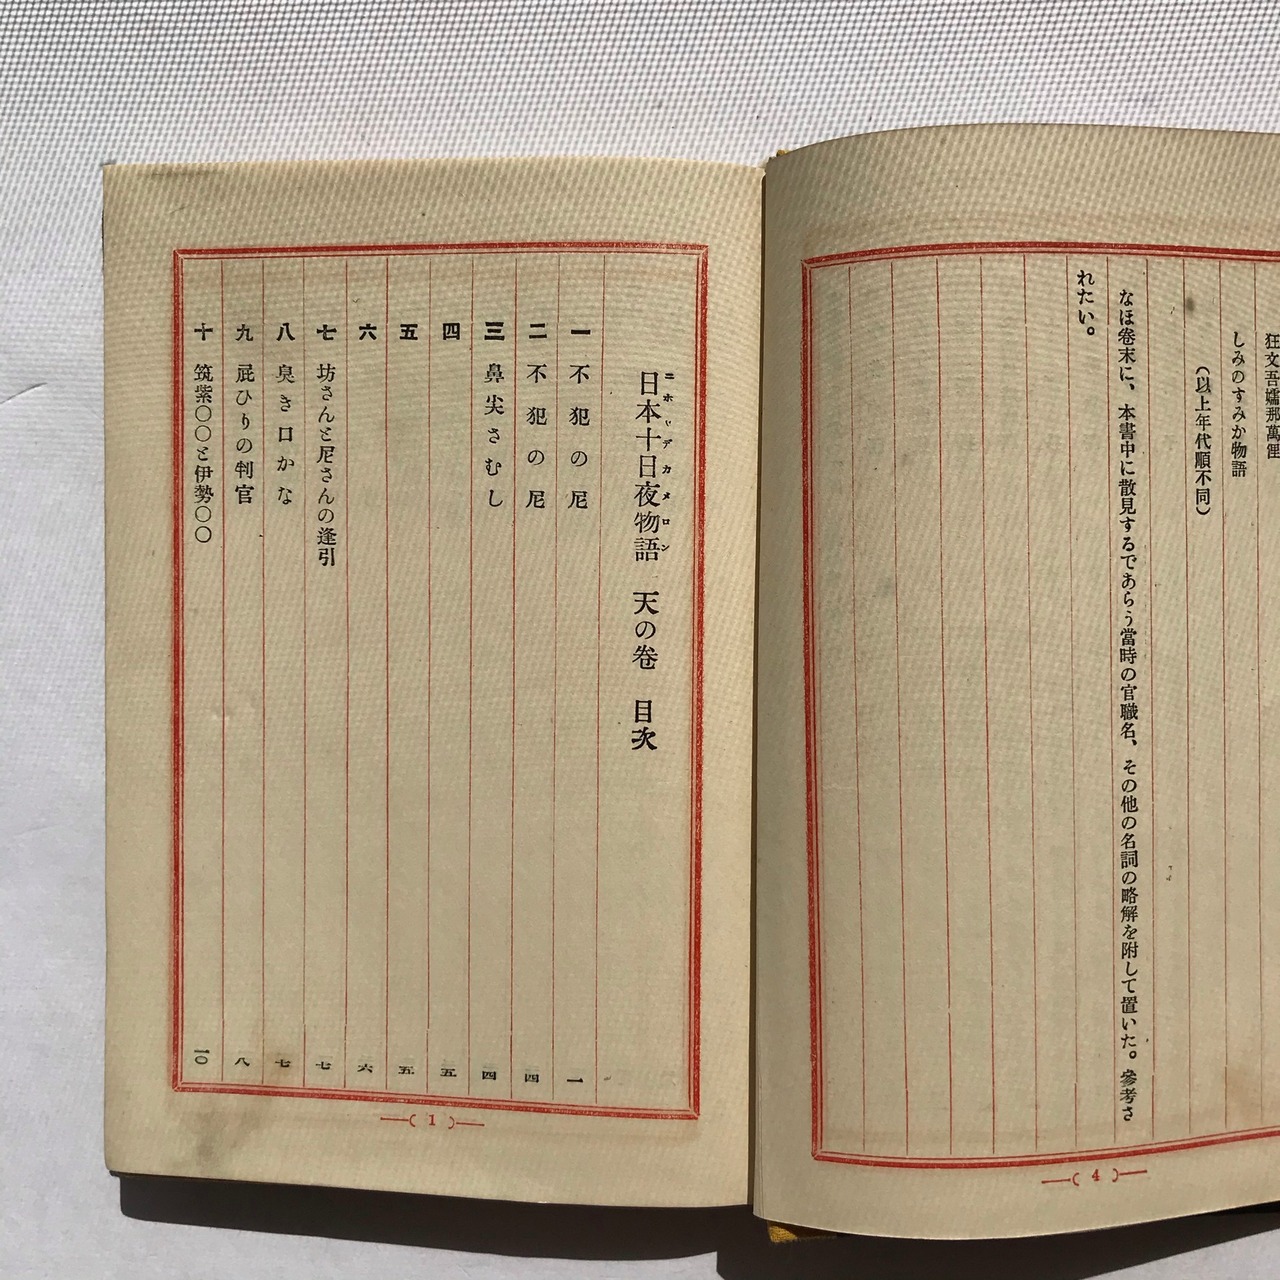 狂文吾嬬那萬俚
しみのすみか物語
(以上年代順不同)
なほ卷末に、本書中に散見するであらう當時の官職名、その他の名詞の略解を附して置いた。參考さ
れたい。
4
日本十日夜物語 天の卷 目次
ニホンデカメロン
一 不犯の尼 一
二 不犯の尼 四
三 鼻尖さむし 四
四 五
五 五
六 六
七 坊さんと尼さんの逢引 七
八 臭き口かな 七
九 屁ひりの判官 八
十 筑紫〇〇と伊勢〇〇 一〇
1